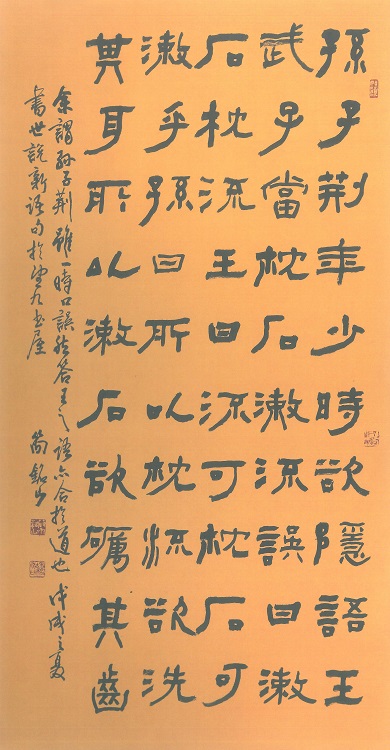 孫子荆年少時欲隱語王
武子當枕石漱流誤曰漱
石枕流王曰流可枕石可
漱乎孫曰所以枕流欲洗
其耳所以漱石欲礪其齒
余謂孙子荆雖一時口誤然答王之语亦合於道也戊戌之夏
書世說新语句於九书屋